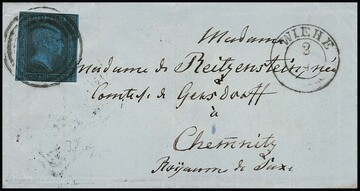 Madame
WIEHE
2
Madame de Reitzenstein, née
Comtesse de Gersdorff
à
Chemnitz
Royaume de Saxe